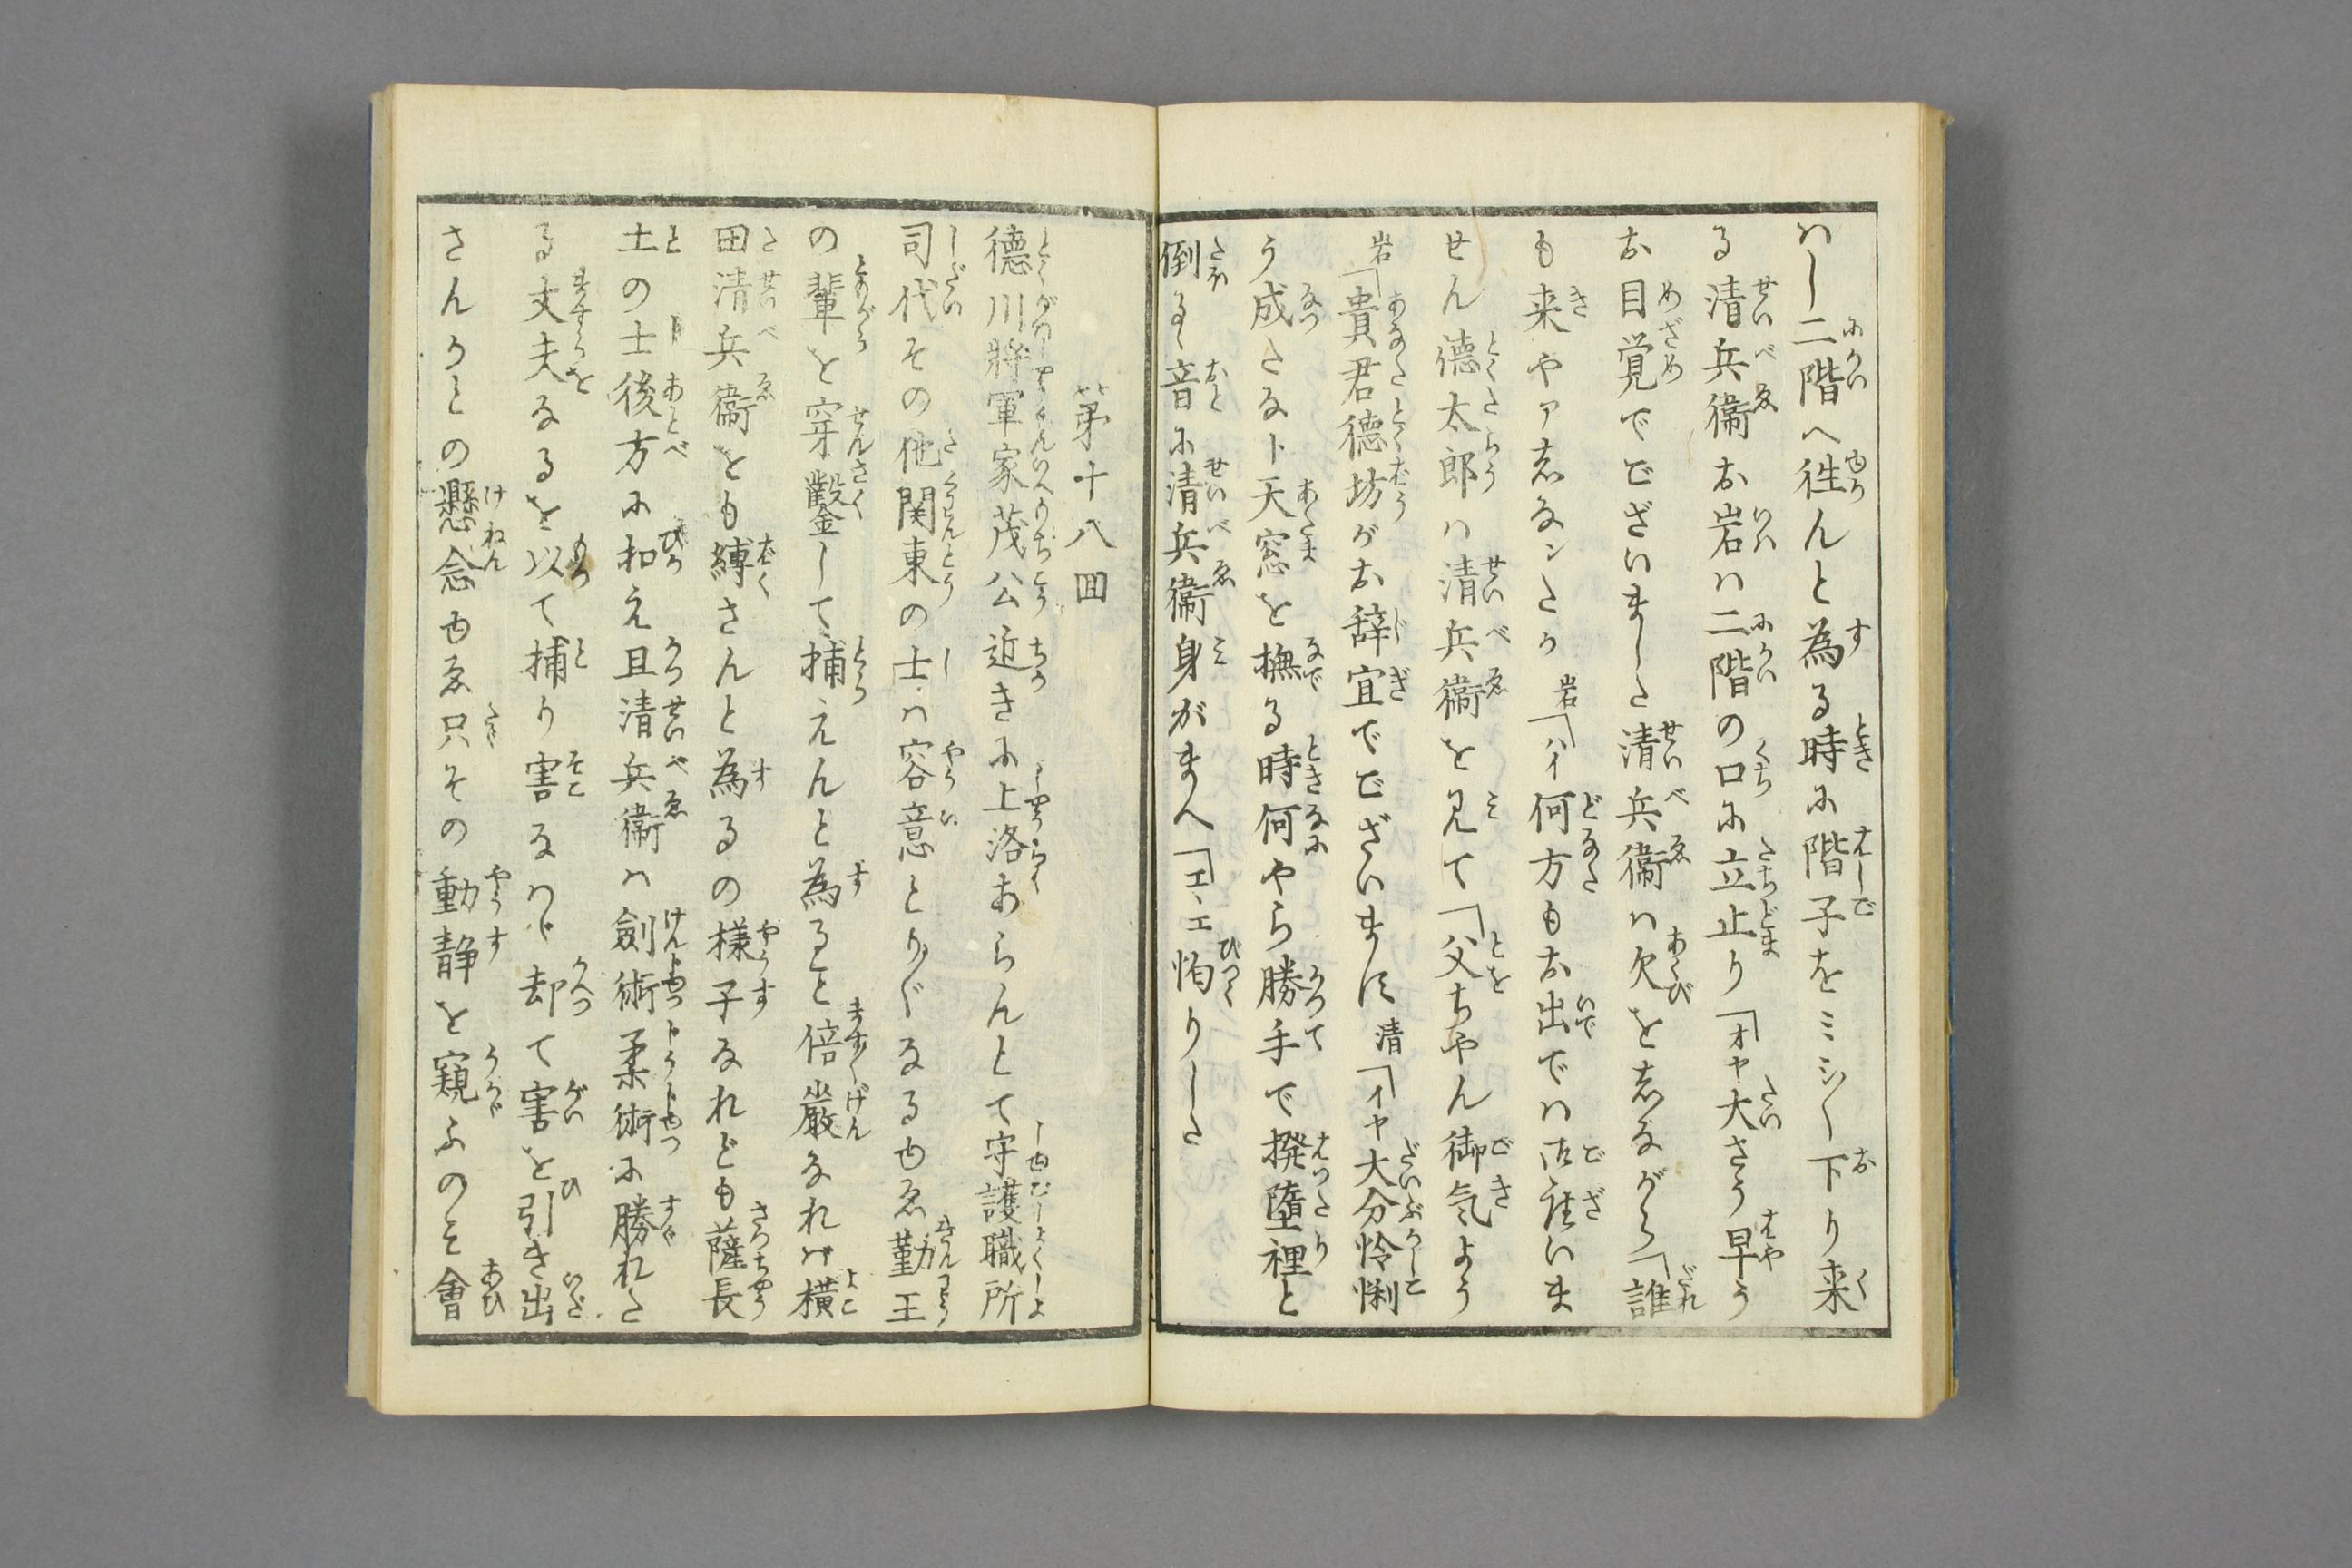 ハし二階へ徃んと為る時に階子をミシ〳〵下り来
る清兵衞お岩ハ二階の口に立止り「オヤ大さう早う
お目覚でございました清兵衞ハ欠を志ながら「誰
も来やァ志なンたか 岩「ハイ何方もお出でハ御座いま
せん德太郎ハ清兵衞を見て「父ちやん御気よう
岩「貴君德坊がお辞宜でございます 清「イヤ大分怜悧
う成たなト天窓を撫る時何やら勝手で撥墮裡と
倒る音に清兵衞身がまへ「エヽエ怕りした
第十八囬
德川將軍家茂公近きに上洛あらんとて守護職所
司代その他関東の士ハ容意とり〴〵なるゆゑ勤王
の輩を穿鑿して捕えんと為ると倍嚴なれバ橫
田清兵衞とも縛さんと為るの様子なれども薩長
土の士後方に扣え且清兵衞ハ劍術柔術に勝れた
る丈夫なるを以て捕り害なハゞ却て害を引き出
さんかとの懸念ゆゑ只その動静を窺ふのミ會